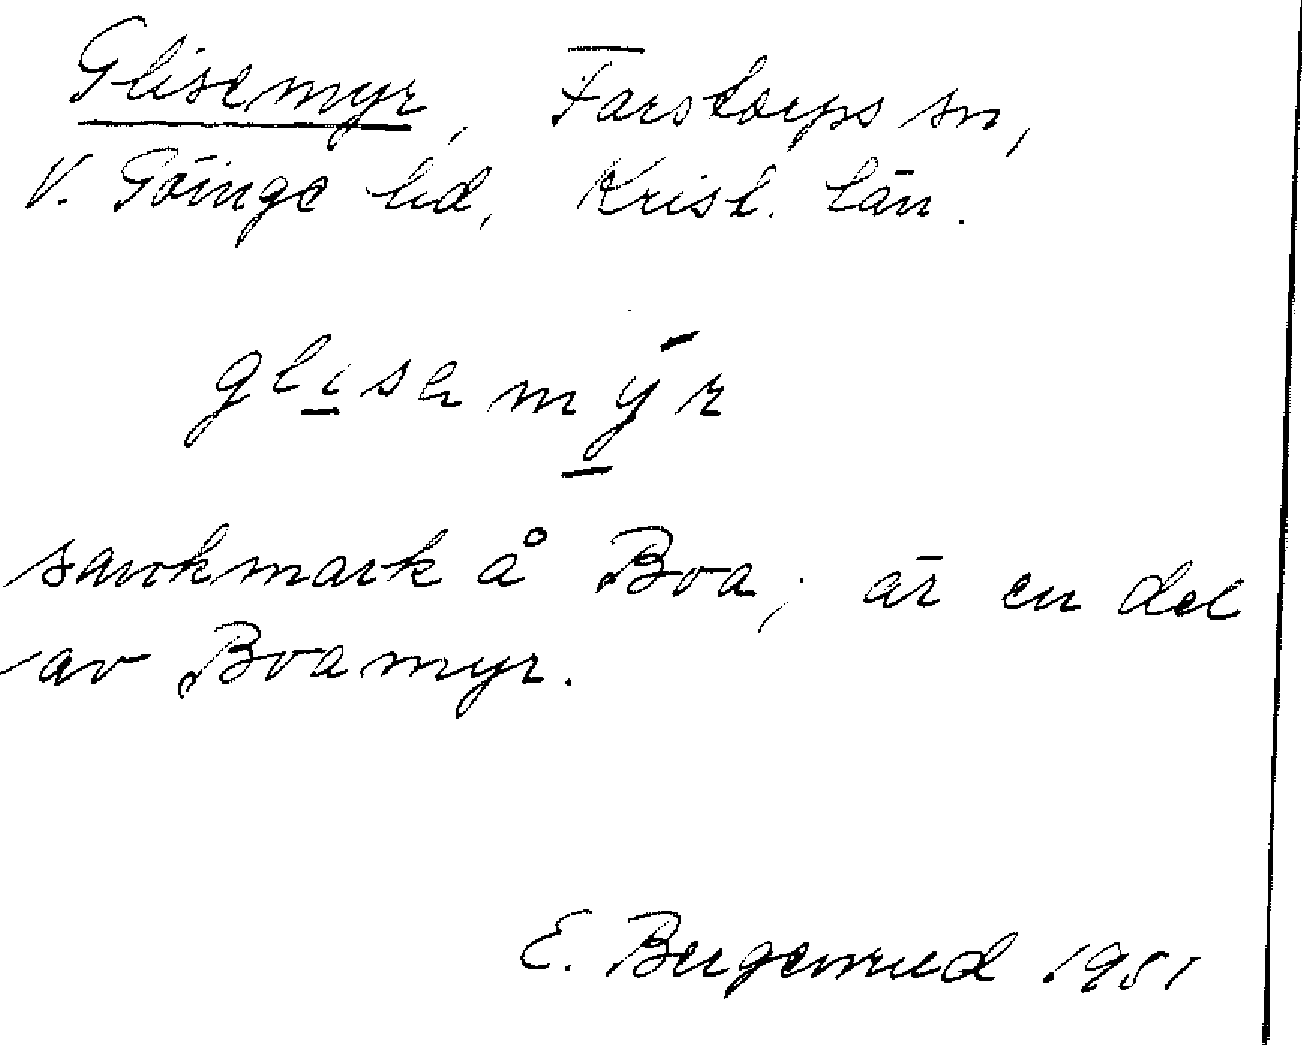 Glisemyr, Farstorps sn,
V. Göinge hd, Krist. län.
glisəmýr
sankmark å Boa; är en del
av Boamyr.
E. Bergenrud 1951